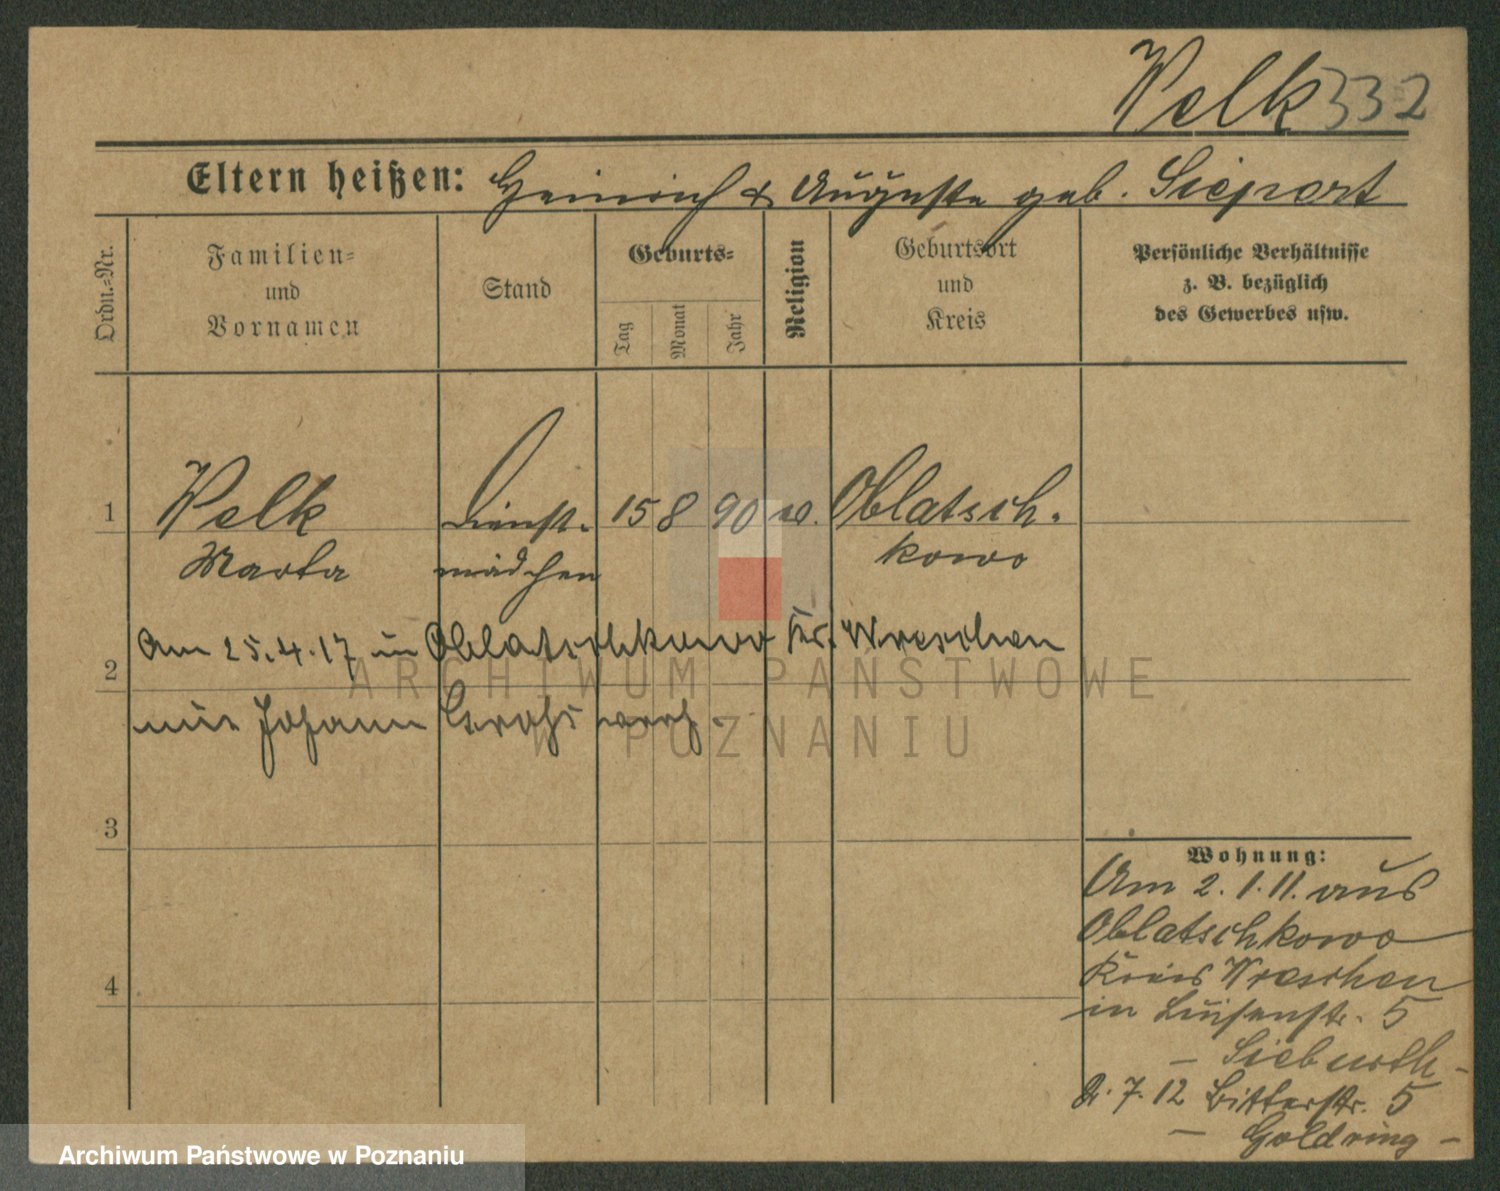 Welk 332
Eltern heißen: Heinrich & Auguste geb.
Ordn.=Nr.
Familien=
und
Vornamen
Stand
Geburts=
Tag
Monat
Jahr
Religion
Geburtsort
und
Kreis
Persönliche Verhältnisse
z. B. bezüglich
des Gewerbes usw.
1 Welk Dienst- 15 8 90 Oblatsch-
Marta mädchen kowo
2 Am 25.4.17 in Oblatschkowo Kr. Wreschen
mit Johann verh.
3
4
Wohnung:
Am 2.1.11. aus
Oblatschkowo
Kreis Wreschen
in Luisenstr. 5
- Sieburth -
7.12 Ritterstr. 5
- Goldring -
ARCHIWUM PAŃSTWOWE
W POZNANIU
Archiwum Państwowe w Poznaniu